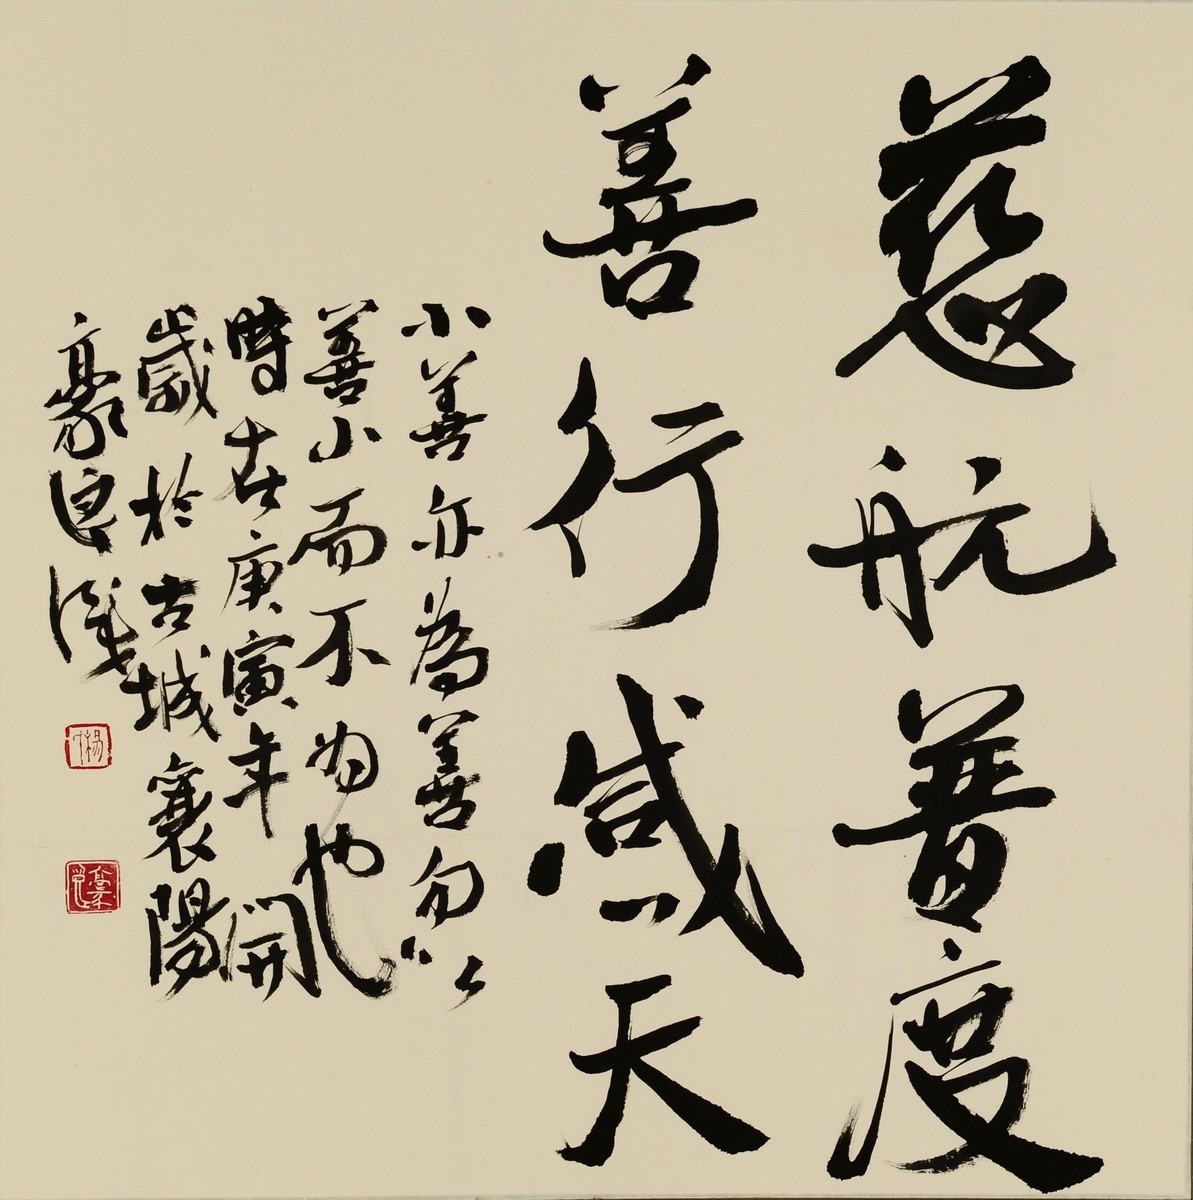 慈航普度
善行感天
小善亦為善勿以
善小而不为也
時在庚寅年開
歲於古城襄陽
豪逸
楊